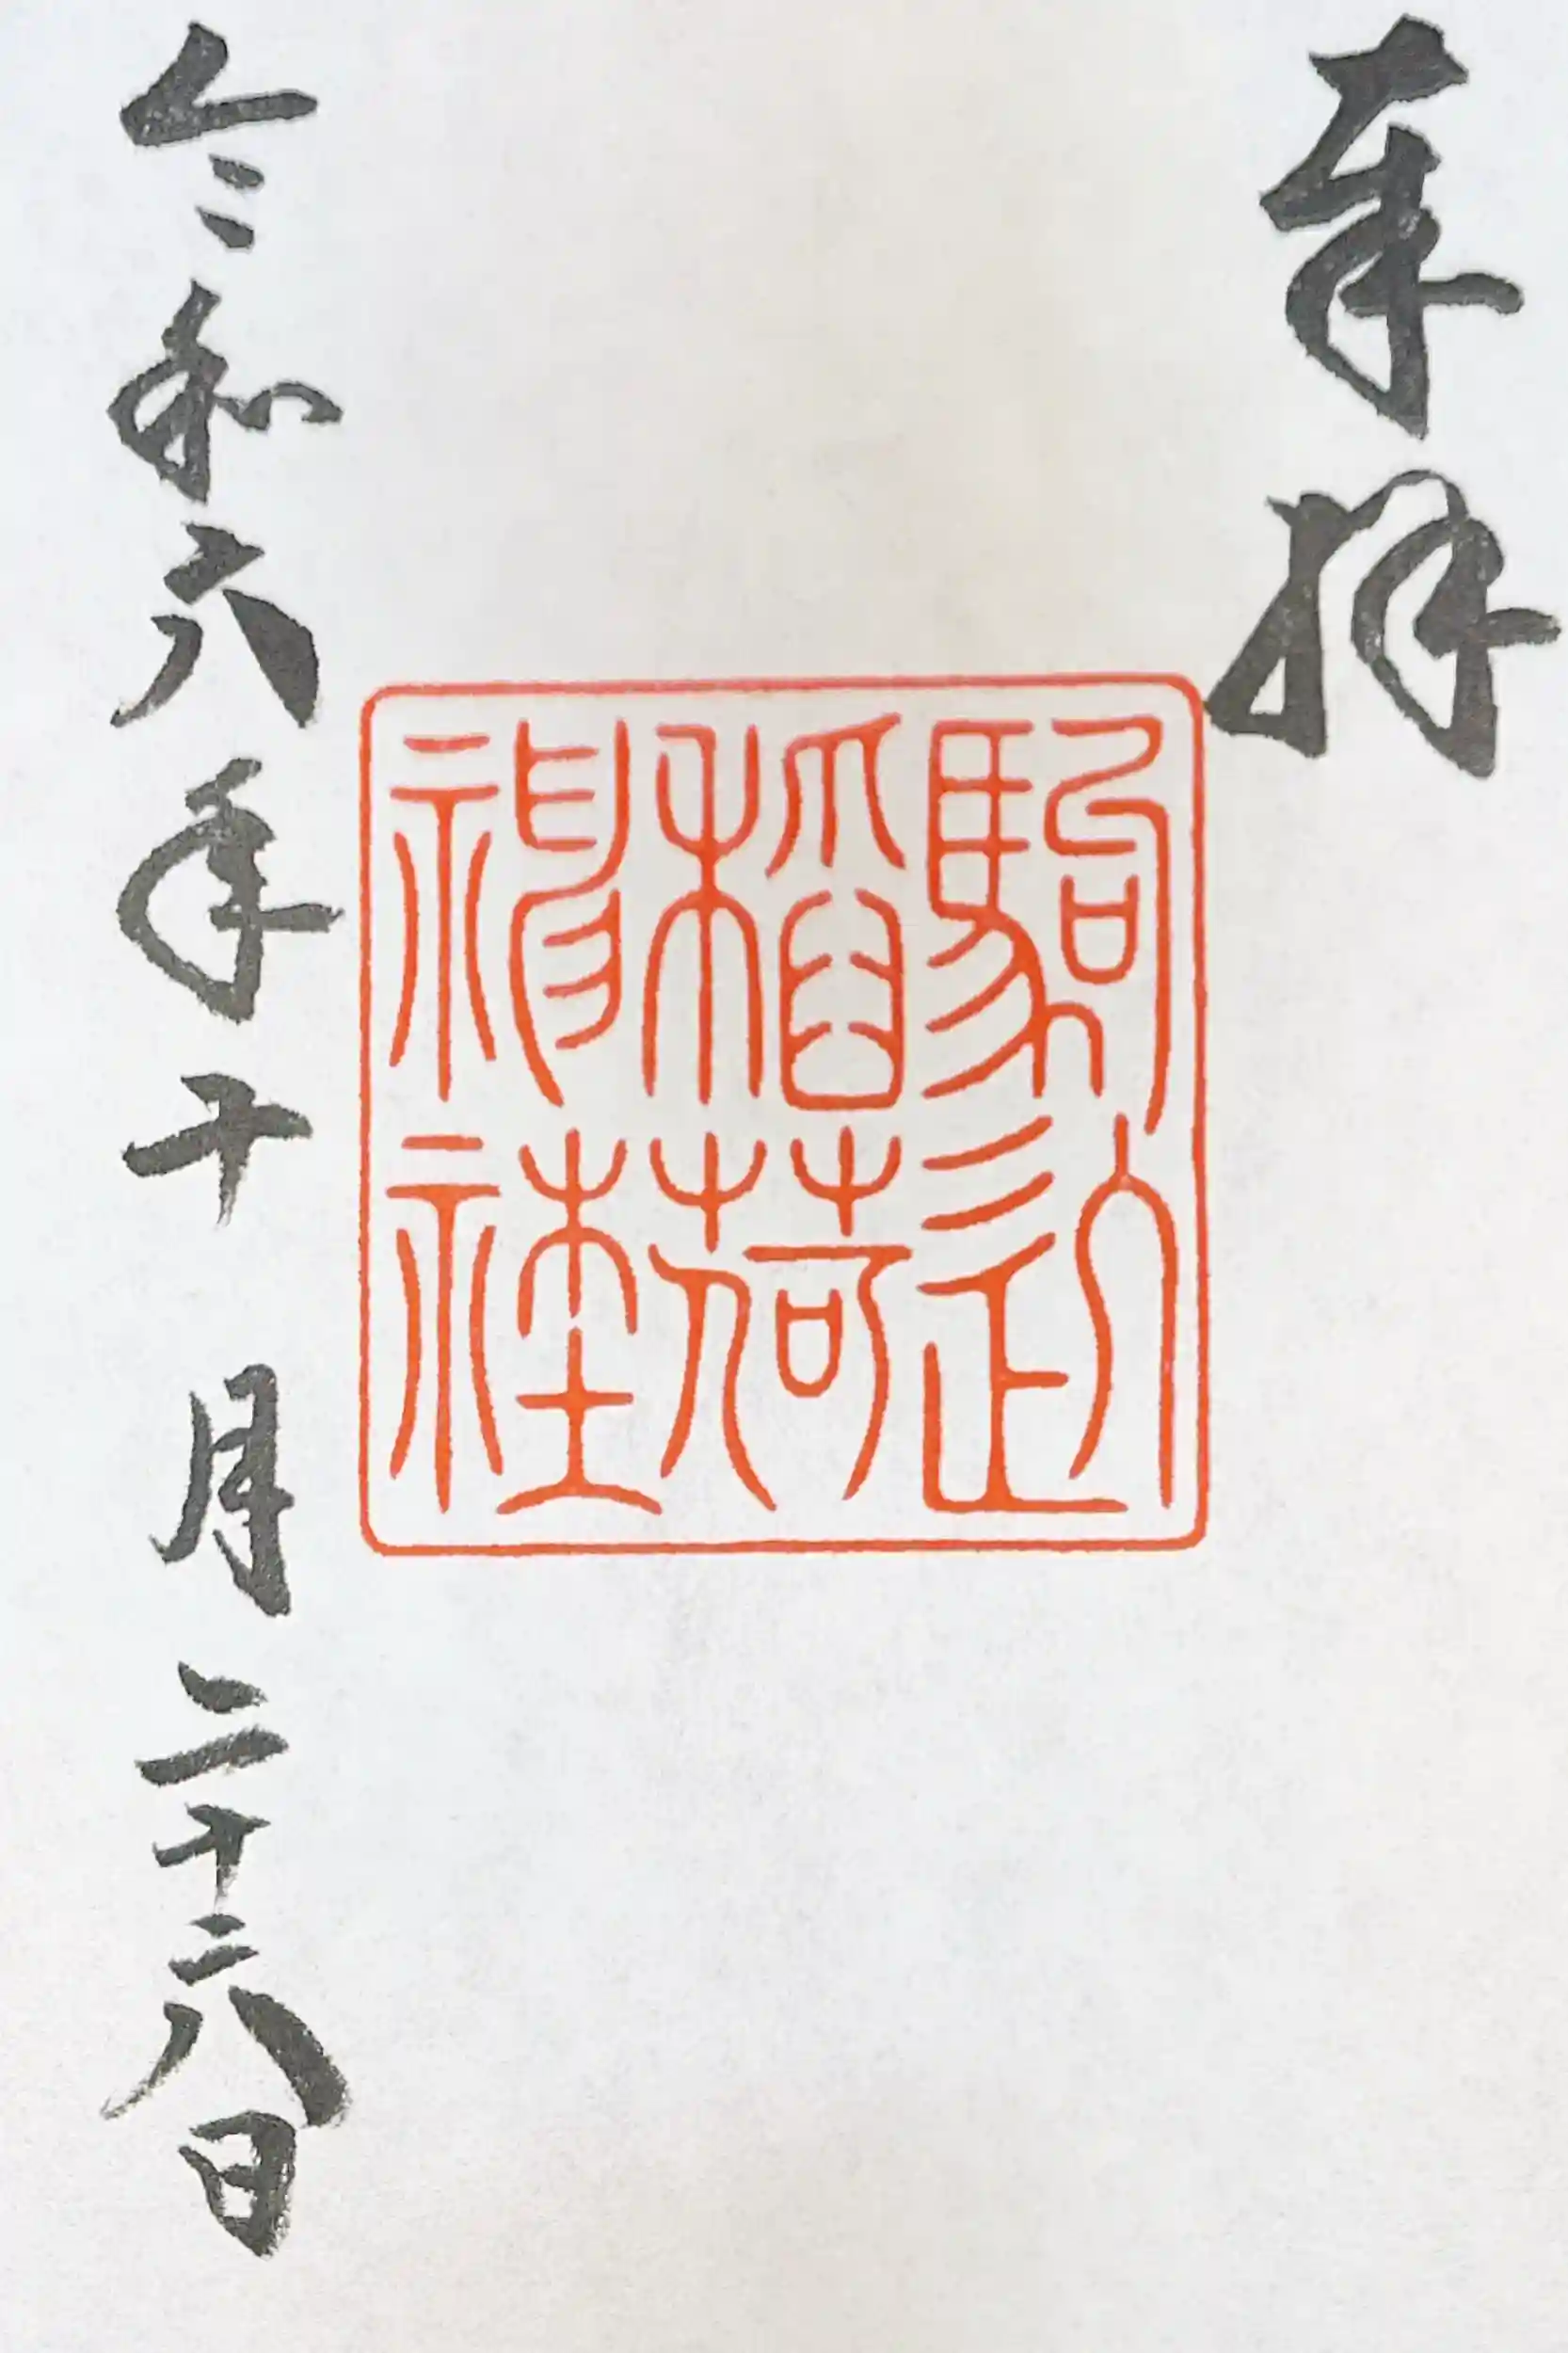 奉拝
駒込
稻荷
神社
令和六年十月二十六日